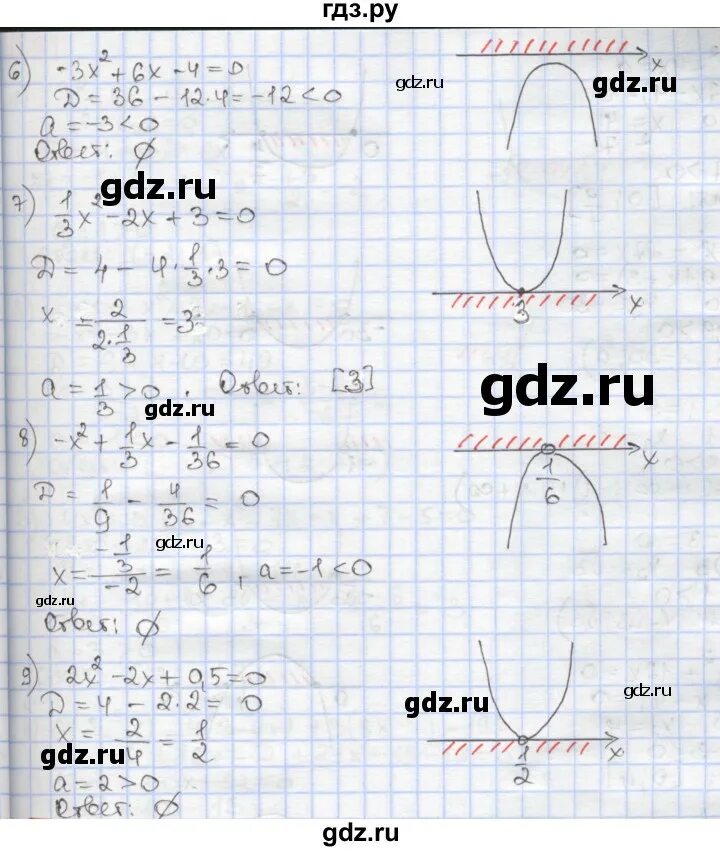 гдз.ру
6) -3x² + 6x - 4 = 0
D = 36 - 12·4 = -12 < 0
a = -3 < 0
Ответ: ∅
x
gdz.ru
gdz.ru
gdz.ru
7) 1/3 x² - 2x + 3 = 0
D = 4 - 4·1/3·3 = 0
x = 2/(2·1/3) = 3
a = 1/3 > 0. Ответ: [3]
3
x
gdz.ru
gdz.ru
8) -x² + 1/3 x - 1/36 = 0
D = 1/9 - 4/36 = 0
x = (-1/3)/(-2) = 1/6, a = -1 < 0
Ответ: ∅
1/6
x
gdz.ru
gdz.ru
9) 2x² - 2x + 0,5 = 0
D = 4 - 2·2 = 0
x = 2/4 = 1/2
a = 2 > 0
Ответ: ∅
1/2
x
gdz.ru
gdz.ru
gdz.ru
gdz.ru